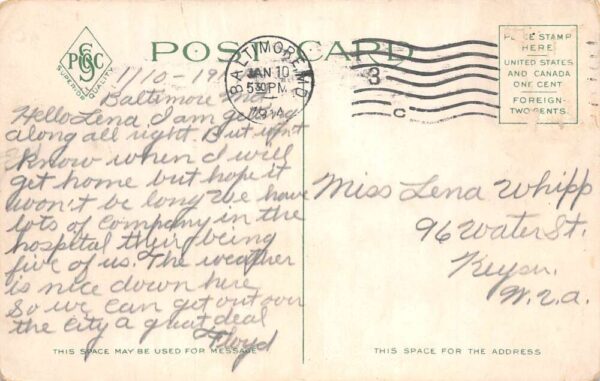 POST CARD
PCGC
SUPERIOR QUALITY
BALTIMORE, MD.
JAN 10
530 PM
3
C
PLACE STAMP
HERE
UNITED STATES
AND CANADA
ONE CENT
FOREIGN-
TWO CENTS.
1/10-19
Baltimore Md.
Hello Lena, I am getting
along all right. But
know when I will
get home but hope it
won't be long We have
lots of Company in the
hospital their being
five of us. The weather
is nice down here
So we can get out over
the city a great deal
Floyd
Miss Lena Whipp
96 Water St.
Keyser.
W.Va.
THIS SPACE MAY BE USED FOR MESSAGE
THIS SPACE FOR THE ADDRESS